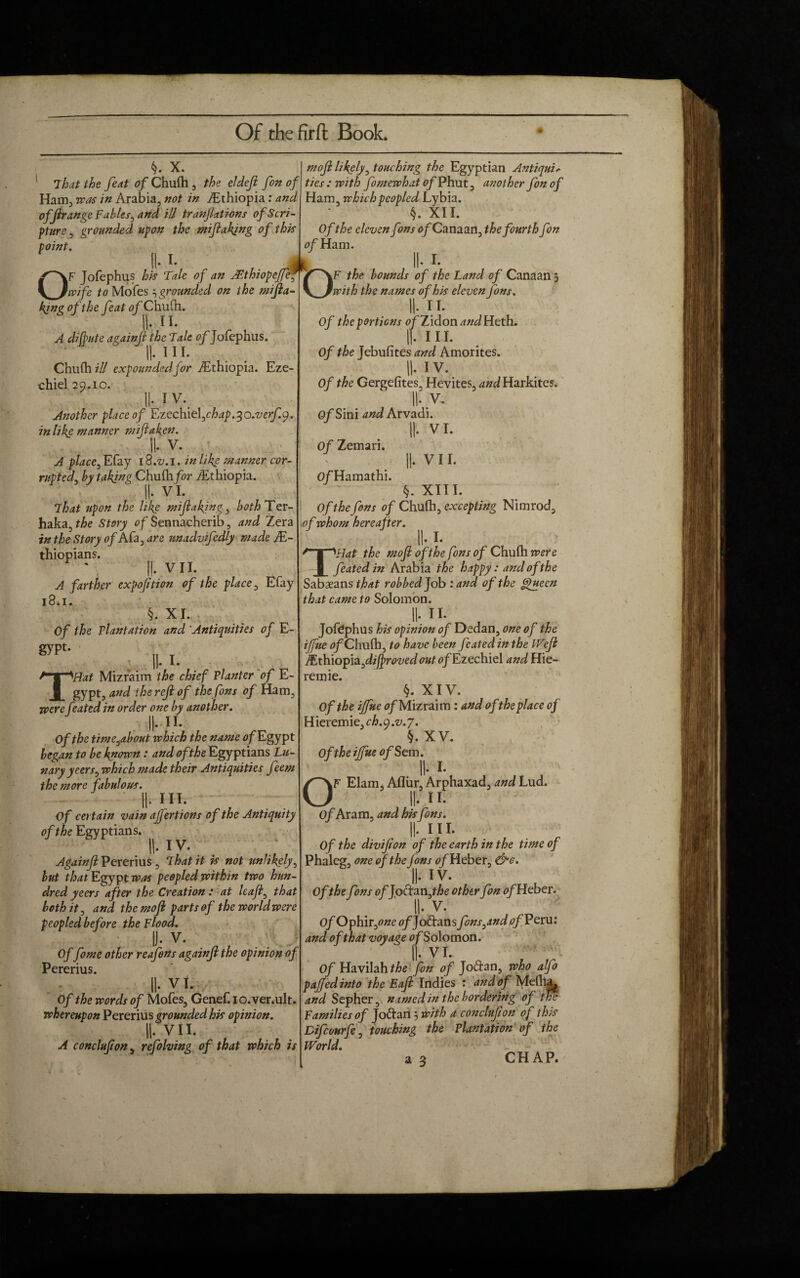 Of the first Book.
§. X.
That the seat of Chush, the eldest son of
Ham, was in Arabia, not in Æthiopia: and
of strange Fables, and ill translations of Scri-
pture, grounded upon the mistaking of this
point.
||. I.
OF Josephus his Tale of an Æthiopesse,
wife to Moses; grounded on the mista-
king of the seat of Chush.
||. II.
A dispute against the Tale of Josephus.
||. III.
Chush ill expounded for Æthiopia. Eze-
chiel 29.10.
||. IV.
Another place of Ezechiel, chap.30.vers.9.
in like manner mistaken.
||. V.
A place, Esay 18.v.1. in like manner cor-
rupted, by taking Chush for Æthiopia.
||. VI.
That upon the like mistaking, both Ter-
haka, the Story of Sennacherib, and Zera
in the Story of Asa, are unadvisedly made Æ-
thiopians.
||. VII.
A farther exposition of the place, Esay
18.1.
§. XI.
Of the Plantation and Antiquities of E-
gypt.
||. I.
THat Mizraim the chief Planter of E-
gypt, and the rest of the sons of Ham,
were seated in order one by another.
||. II.
Of the time, about which the name of Egypt
began to be known: and of the Egyptians Lu-
nary yeers, which made their Antiquities seem
the more fabulous.
||. III.
Of certain vain assertions of the Antiquity
of the Egyptians.
||. IV.
Against Pererius, That it is not unlikely,
but that Egypt was peopled within two hun-
dred yeers after the Creation: at least, that
both it, and the most parts of the world were
peopled before the Flood.
||. V.
Of some other reasons against the opinion of
Pererius.
||. VI.
Of the words of Moses, Genes. 10. ver. ult.
whereupon Pererius grounded his opinion.
||. VII.
A conclusion, resolving of that which is
most likely, touching the Egyptian Antiqui-
ties: with somewhat of Phut, another son of
Ham, which peopled Lybia.
§. XII.
Of the eleven sons of Canaan, the fourth son
of Ham.
||. I.
OF the bounds of the Land of Canaan;
with the names of his eleven sons.
||. II.
Of the portions of Zidon and Heth.
||. III.
Of the Jebusites and Amorites.
||. IV.
Of the Gergesites, Hevites, and Harkites.
||. V.
Of Sini and Arvadi.
||. VI.
Of Zemari.
||. VII.
Of Hamathi.
§. XIII.
Of the sons of Chush, excepting Nimrod,
of whom hereafter.
||. I.
THat the most of the sons of Chush were
seated in Arabia the happy: and of the
Sabæans that robbed Job: and of the Queen
that came to Solomon.
||. II.
Josephus his opinion of Dedan, one of the
issue of Chush, to have been seated in the West
Æthiopia, disproved out of Ezechiel and Hie-
remie.
§. XIV.
Of the issue of Mizraim: and of the place of
Hieremie, ch.9.v.7.
§. XV.
Of the issue of Sem.
||. I.
OF Elam, Assur, Arphaxad, and Lud.
||. II.
Of Aram, and his sons.
||. III.
Of the division of the earth in the time of
Phaleg, one of the sons of Heber, &c.
||. IV.
Of the sons of Joctan, the other son of Heber.
||. V.
Of Ophir, one of Joctans sons, and of Peru:
and of that voyage of Solomon.
||. VI.
Of Havilah the son of Joctan, who also
passed into the East Indies: and of Mesha
and Sepher, named in the bordering of the
Families of Joctan; with a conclusion of this
Discourse, touching the Plantation of the
World.
a 3
CHAP.